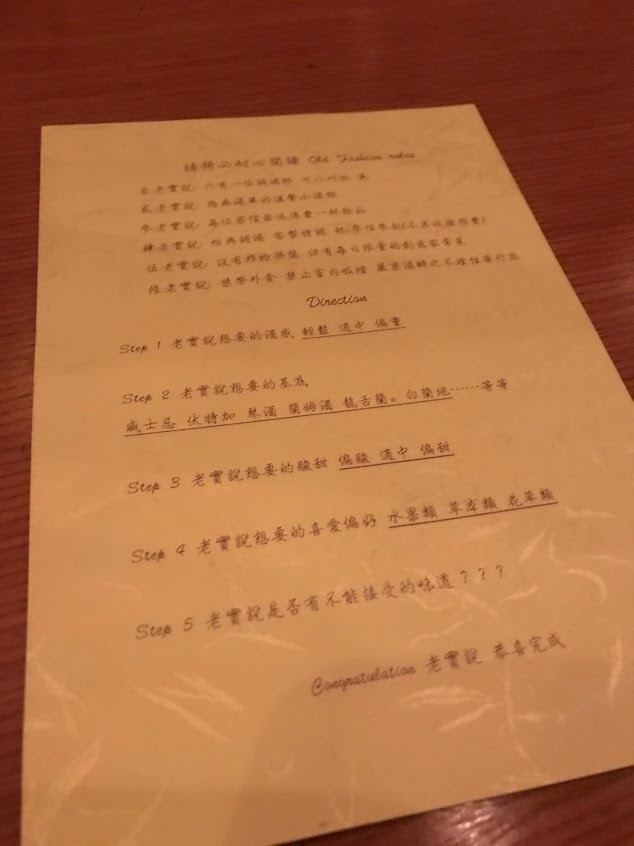 請務必耐心閱讀 Old Fashion rules
壹老實說: 只有一位調酒師 可以叫他
貳老實說: 為無酒單的溫馨小酒館
參老實說: 每位客倌最低消費一杯飲品
肆老實說: 經典調酒 客製特調
伍老實說: 沒有炸物拼盤 但有每日限量的創意家常菜
陸老實說: 禁帶外食 禁止室內吸煙 嚴禁酒醉之不理性等行為
Direction
Step 1 老實說想要的酒感、輕鬆 適中 偏重
Step 2 老實說想要的基底、
威士忌、伏特加 琴酒 蘭姆酒 龍舌蘭。白蘭地……等等
Step 3 老實說想要的酸甜 偏酸 適中 偏甜
Step 4 老實說想要的喜愛偏好 水果類 草本類 花草類
Step 5 老實說是否有不能接受的味道???
Congratulation 老實說 恭喜完成